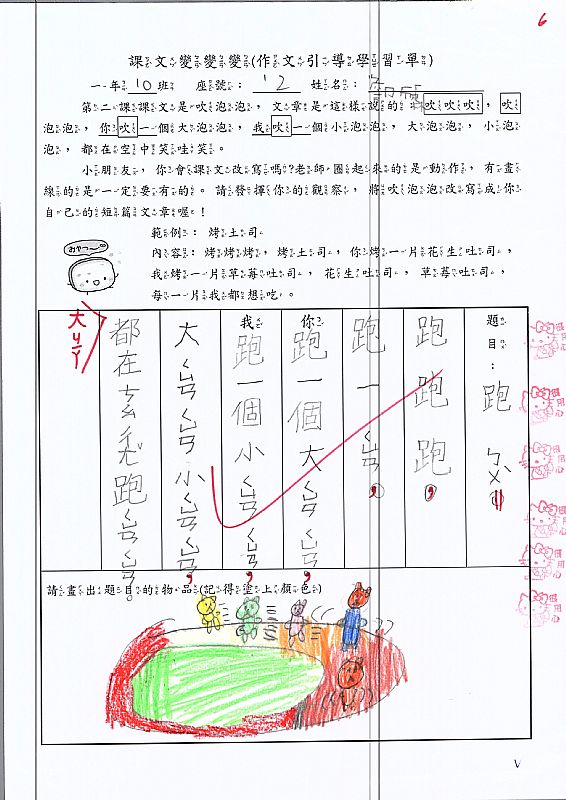 6
課文變變變(作文引導學習單)
一年10班 座號：12 姓名：
第二課課文是吹泡泡，文章是這樣說的：吹吹吹，吹
泡泡，你吹一個大泡泡，我吹一個小泡泡，大泡泡，小泡
泡，都在空中笑哇笑。
小朋友，你會課文改寫嗎?老師圈起來的是動作，有畫
線的是一定要有的。請發揮你的觀察，將吹泡泡改寫成你
自己的短篇文章喔！
範例：烤土司
內容：烤烤烤，烤土司，你烤一片花生吐司，
我烤一片草莓吐司，花生吐司，草莓吐司，
每一片我都想吃。
題目：跑ㄅㄨ
跑跑跑，
跑一ㄑㄩㄢ，
你跑一個大ㄑㄩㄢ，
我跑一個小ㄑㄩㄢ，
大ㄑㄩㄢ小ㄑㄩㄢ，
都在ㄘㄠ 跑ㄑㄩㄢㄑㄩㄢ。
大ㄐㄧㄚ
請畫出題目的物品(記得塗上顏色)
很用心
很用心
很用心
很用心
很用心
很用心
V